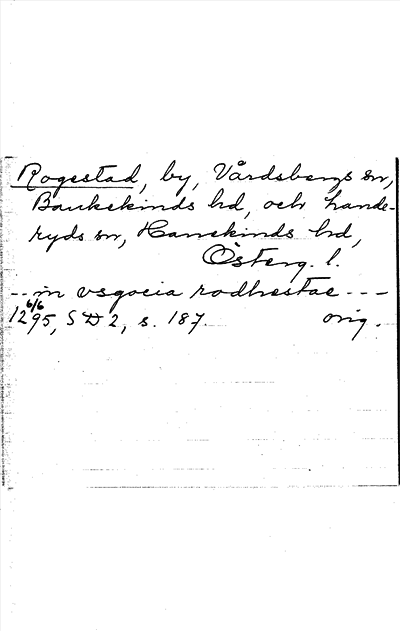 Rogestad, by, Vårdsbergs sn,
Bankekinds hd, och Lande-
ryds sn, Hanekinds hd,
Österg. l.
-- in osgocia rodhestac ---
12 6/6 95, SD 2, s. 187. orig.